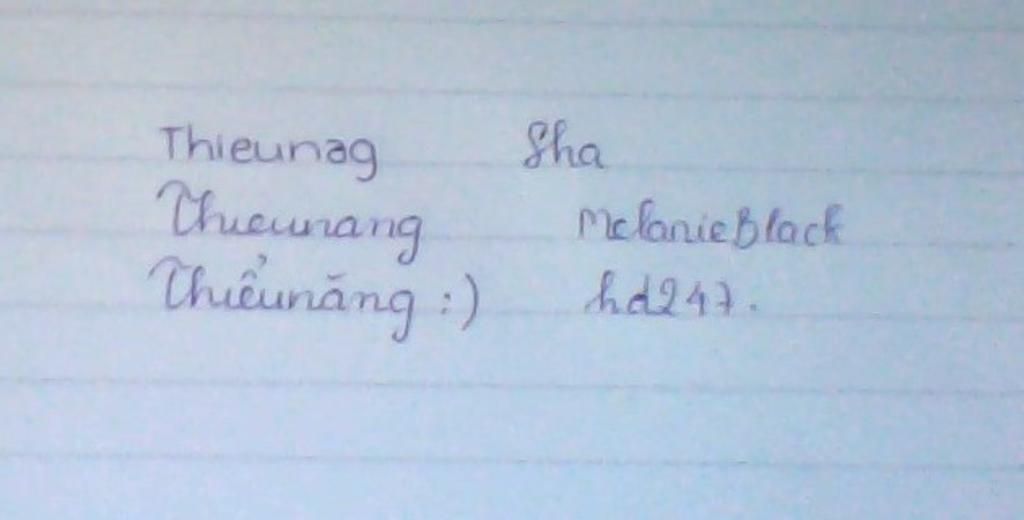 Thieunag Sha
Thieunang MelanieBlack
Thiểunăng :) hd247.